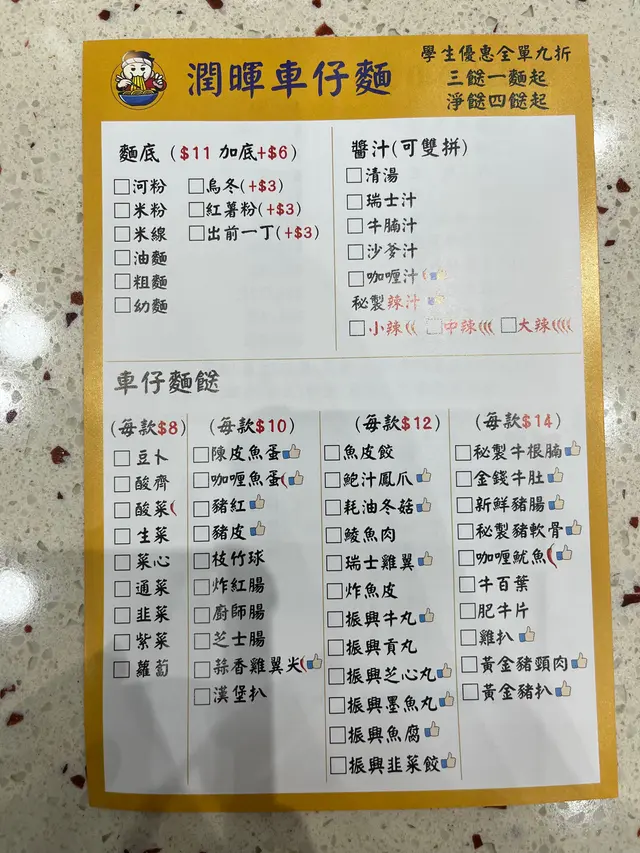 潤暉車仔麵
學生優惠全單九折
三餸一麵起
淨餸四餸起
麵底 ($11 加底+$6)
河粉
米粉
米線
油麵
粗麵
幼麵
烏冬(+$3)
紅薯粉(+$3)
出前一丁(+$3)
醬汁(可雙拼)
清湯
瑞士汁
牛腩汁
沙爹汁
咖喱汁
秘製辣汁
小辣 中辣 大辣
車仔麵餸
(每款$8)
豆卜
酸齋
酸菜
生菜
菜心
通菜
韭菜
紫菜
蘿蔔
(每款$10)
陳皮魚蛋
咖喱魚蛋
豬紅
豬皮
枝竹球
炸紅腸
廚師腸
芝士腸
蒜香雞翼尖
漢堡扒
(每款$12)
魚皮餃
鮑汁鳳爪
耗油冬菇
鯪魚肉
瑞士雞翼
炸魚皮
振興牛丸
振興貢丸
振興芝心丸
振興墨魚丸
振興魚腐
振興韭菜餃
(每款$14)
秘製牛根腩
金錢牛肚
新鮮豬腸
秘製豬軟骨
咖喱魷魚
牛百葉
肥牛片
雞扒
黃金豬頸肉
黃金豬扒